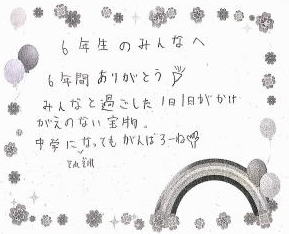 6年生のみんなへ
6年間ありがとう
みんなと過ごした1日1日がかけ
がえのない宝物。
中学になってもがんばろーね